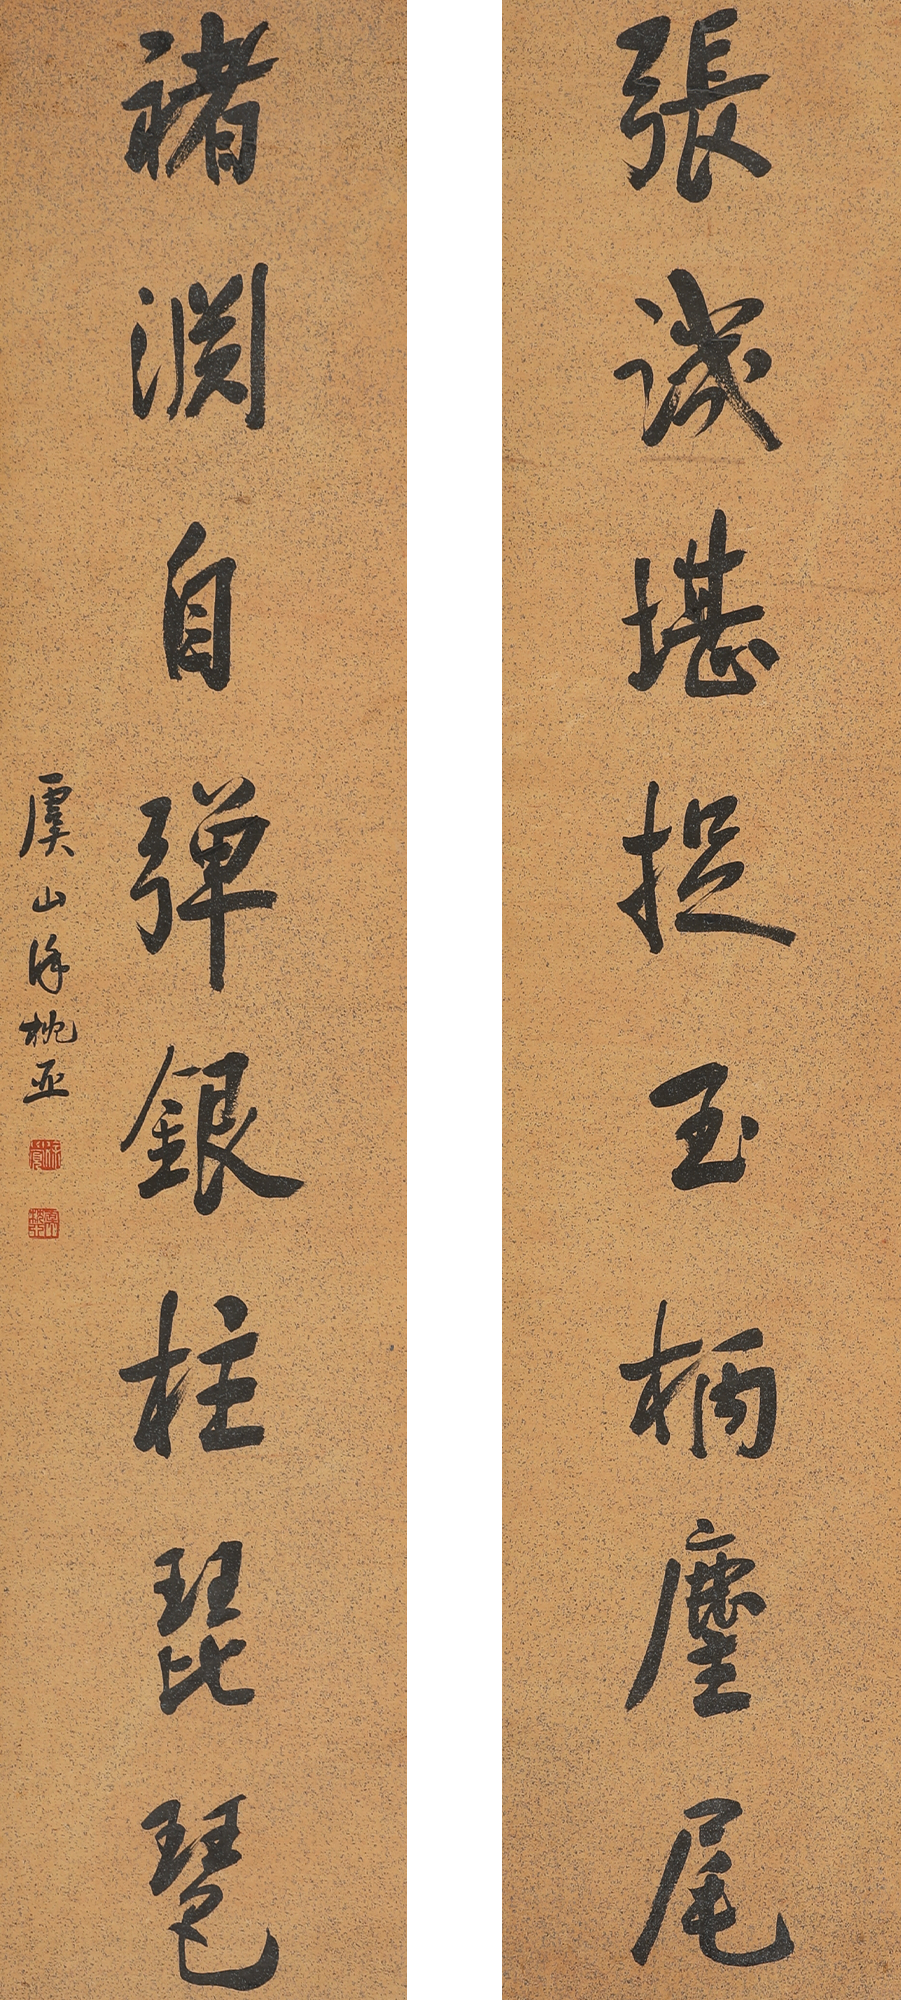 張譏堪捉玉柄麈尾
褚淵自彈銀柱琵琶
虞山徐枕亞